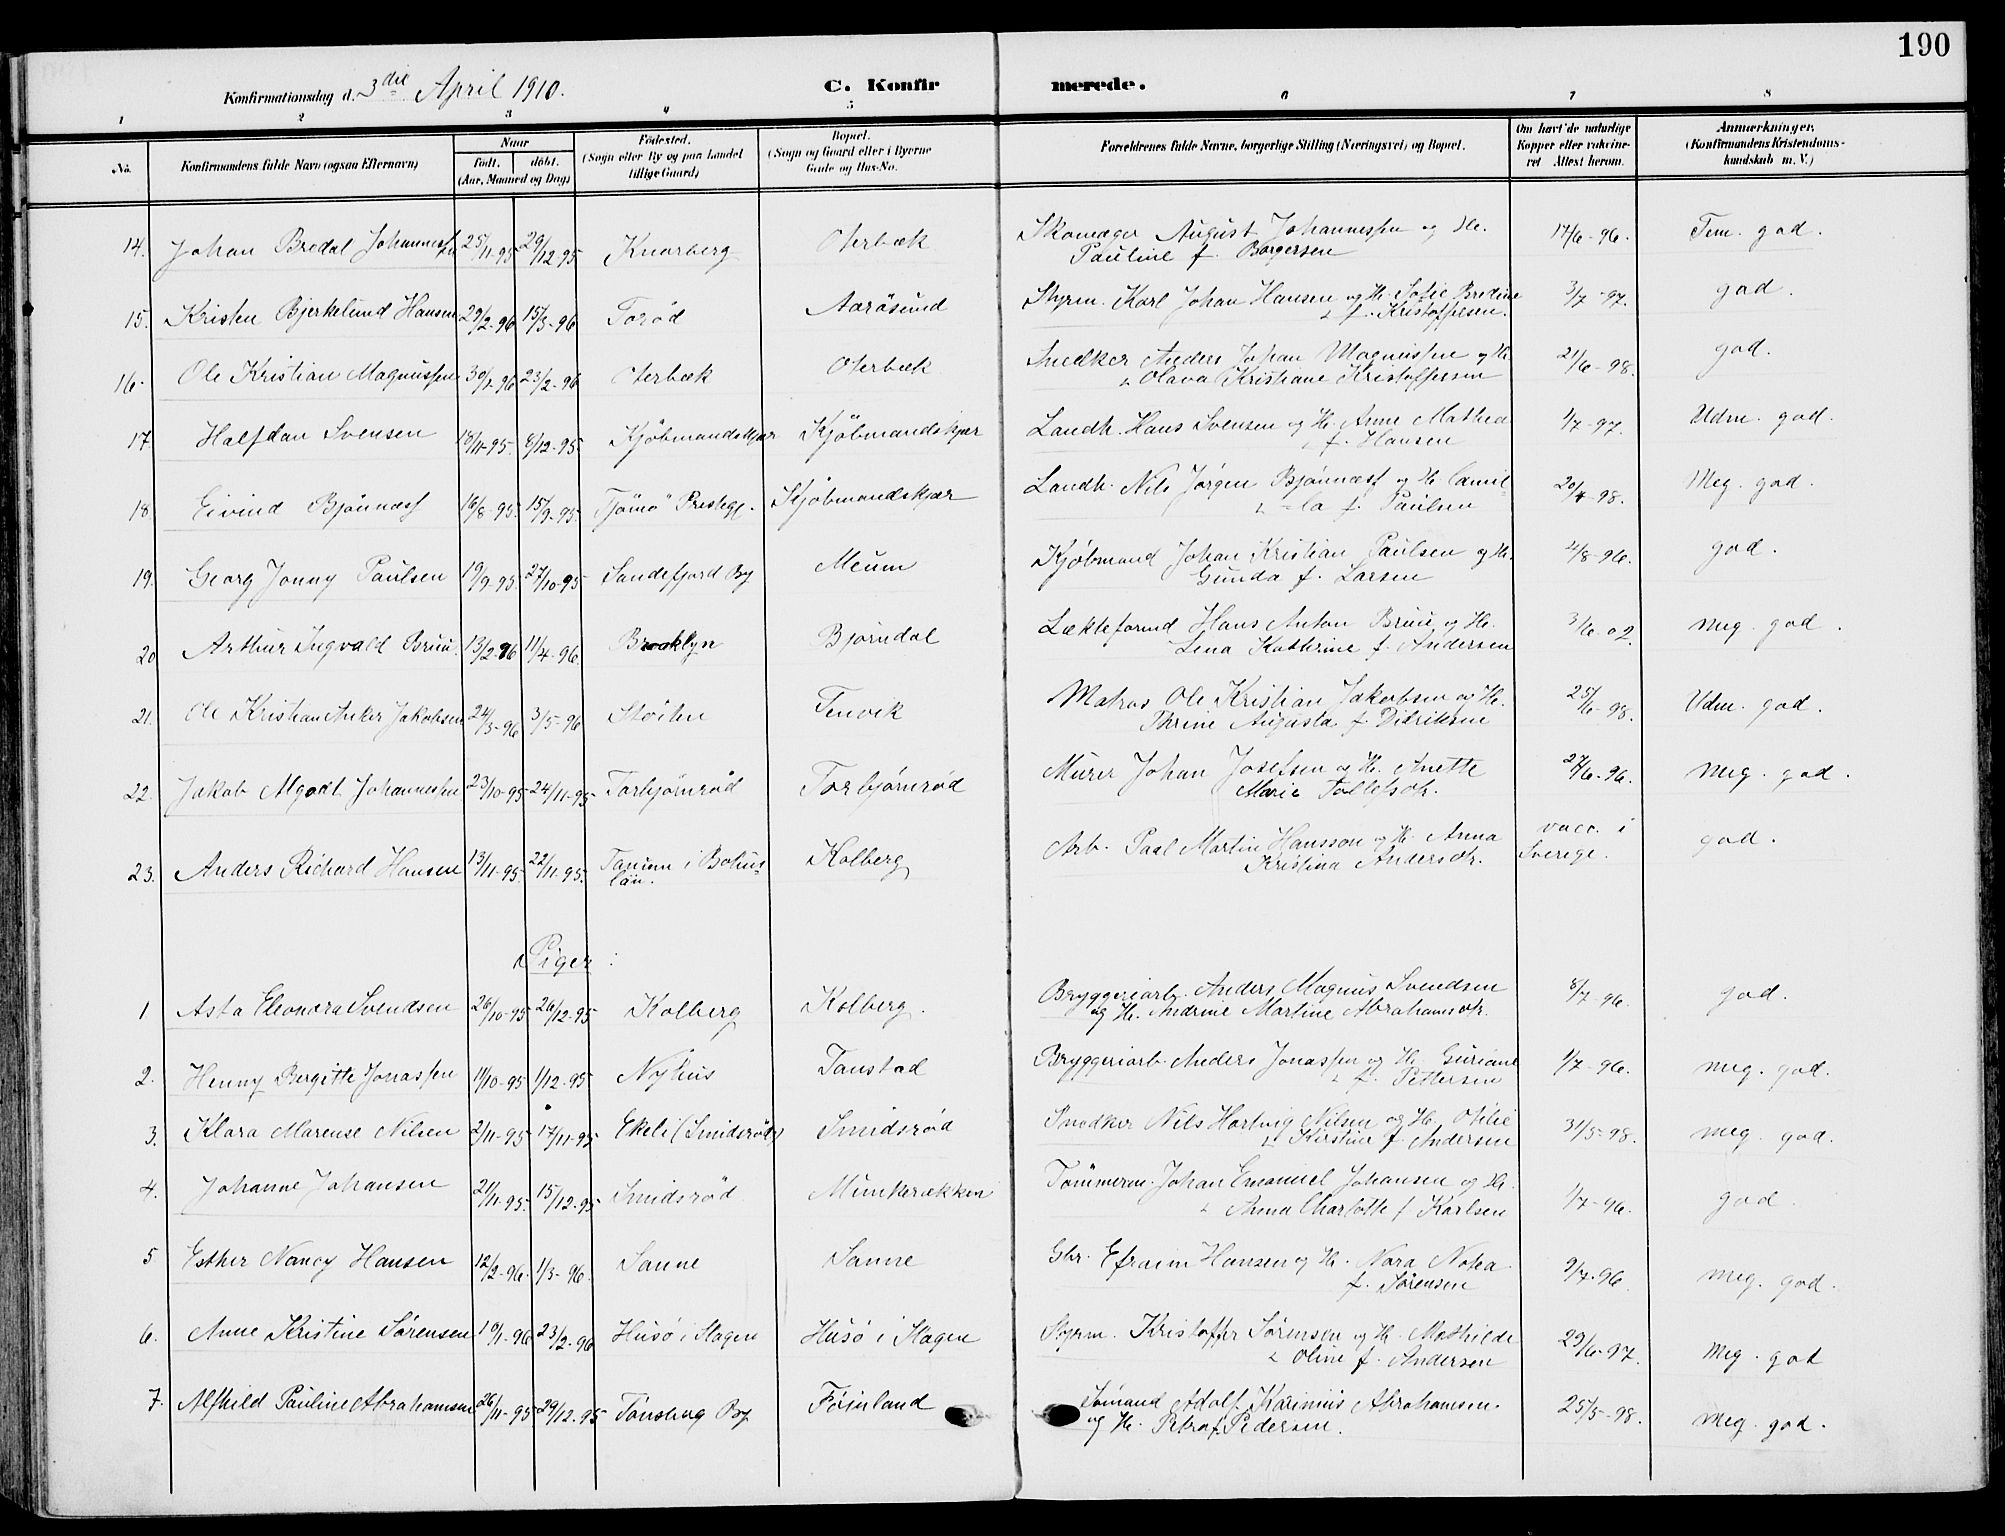 190
Konfirmationsdag d. 3die April 1910.
C. Konfirmerede.
1 2 3 4 5 6 7 8
No.
Konfirmandens fulde Navn (ogsaa Efternavn)
Naar
født. døbt.
(Aar, Maaned og Dag)
Fødested.
(Sogn eller By og paa Landet
tillige Gaard)
Bopæl.
(Sogn og Gaard eller i Byerne
Gade og Hus-No.
Forældrenes fulde Navne, borgerlige Stilling (Næringsvei) og Bopæl.
Om havt de naturlige
Kopper eller vakcine-
ret Attest herom.
Anmærkninger.
(Konfirmandens Kristendoms-
kundskab m. V.)
14. Johan Bredal Johannessen 25/11-95 29/12-95 Knarberg Oterbæk Skomager August Johannessen og H. 17/6-96. Tem. god.
Pauline f. Borgersen
15. Kristen Bjerkelund Hansen 29/2-96 15/3-96 Torød Aarøsund Styrm. Karl Johan Hansen og H. Sofie Bredine 3/7-97. god.
f. Kristoffersen.
16. Ole Kristian Magnussen 30/1-96 23/2-96 Oterbæk Oterbæk Snedker Anders Johan Magnussen og H. 21/6-98. god.
Olava Kristiane Kristoffersen
17 Halfdan Svensen 18/11-95. 8/12-95. Kjøbmandskjær Kjøbmandskjær Landh. Hans Svensen og H. Anne Mathea 1/7-97. Udm. god.
f. Hansen
18 Eivind Bjønness 16/8-95. 15/9-95. Tjømø Prestegj. Kjøbmandskjær Landh. Nils Jørgen Bjønness og H. Camil- 20/4-98. Meg. god.
=la f. Paulsen
19. Georg Jonny Paulsen 19/9-95. 27/10-95 Sandefjord By Meum Kjøbmand Johan Kristian Paulsen og H. 4/8-96. god.
Gunda f. Larsen
20 Arthur Ingvald Bruu. 13/2-96 11/4-96 Brooklyn Bjørndal Lækteformd Hans Anton Bruu og H. 3/6-02. Meg. god.
Lena Kathrine f. Andersen
21. Ole Kristian Anker Jakobsen 24/3-96 3/5-96 Støiten Tenvik Matros Ole Kristian Jakobsen og H. 25/6-98. Udm. god.
Thrine Augusta f. Didriksen
22. Jakob Algodt Johannessen 23/10-95 24/11-95 Torbjørnrød Torbjørnrød Murer Johan Josefsen og H. Anette 24/6-96. Meg. god.
Marie Tollefsdr.
23. Anders Richard Hansen 13/11-95. 22/11-95. Tanum i Bohus- Kolberg Arb. Paal Martin Hansson og H. Anna vacc. i god.
län. Kristina Andersdr. Sverige.
Piger:
1 Asta Eleonora Svendsen 26/10-95 26/12-95 Kolberg Kolberg. Bryggeriarb. Anders Magnus Svendsen 8/7-96. god.
og H. Andrine Martine Abrahamsdr.
2. Henny Bergitte Jonassen 11/10-95 1/12-95 Nyhus Tanstad Bryggeriarb. Anders Jonassen og H. Guriane 1/7-96. Meg. god.
f. Pettersen
3. Klara Marense Nilsen 2/11-95 17/11-95 Ekeli (Smidsrød) Smidsrød Snedker Nils Hartvig Nilsen og H. Otilie 31/5-98. Meg. god.
Kirstine f. Andersen
4. Johanne Johansen 21/11-95. 15/12-95 Smidsrød Munkerækken Tømmerm. Johan Emanuel Johansen og H. 1/7-96. god.
Anna Charlotte f. Karlsen
5 Esther Nancy Hansen 12/2-96. 1/3-96. Sanne Sanne Gbr. Efraim Hansen og H. Nora Notea 9/7-96. Meg. god.
f. Sørensen
6. Anne Kristine Sørensen 10/1-96 23/2-96 Husø i Slagen Husø i Slagen Styrm. Kristoffer Sørensen og H. Mathilde 29/6-97. Meg. god
Oline f. Andersen
7. Alfhild Pauline Abrahamsen 26/11-95 29/12-95 Tønsberg By. Føinland Sømand Adolf Karinius Abrahamsen 25/5-98. Meg. god.
og H. Petra f. Pedersen.